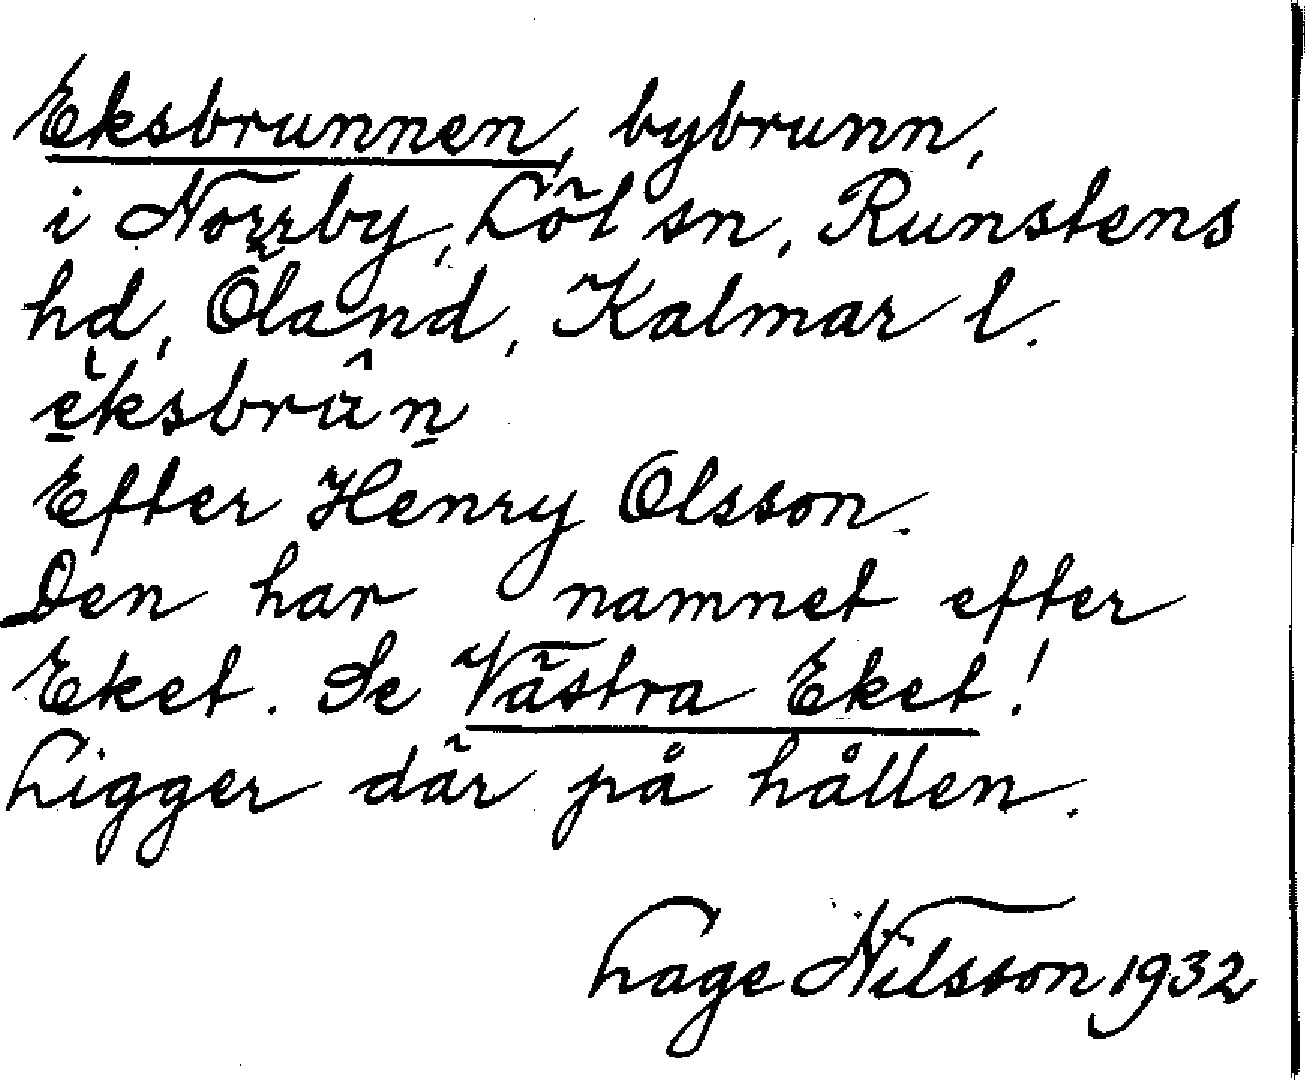 Eksbrunnen, bybrunn,
i Norrby, Löt sn, Runstens
hd, Öland, Kalmar l.
è̠ksbrân̠
Efter Henry Olsson.
Den har namnet efter
Eket. Se Västra Eket!
Ligger där på hållen.
Lage Nilsson 1932